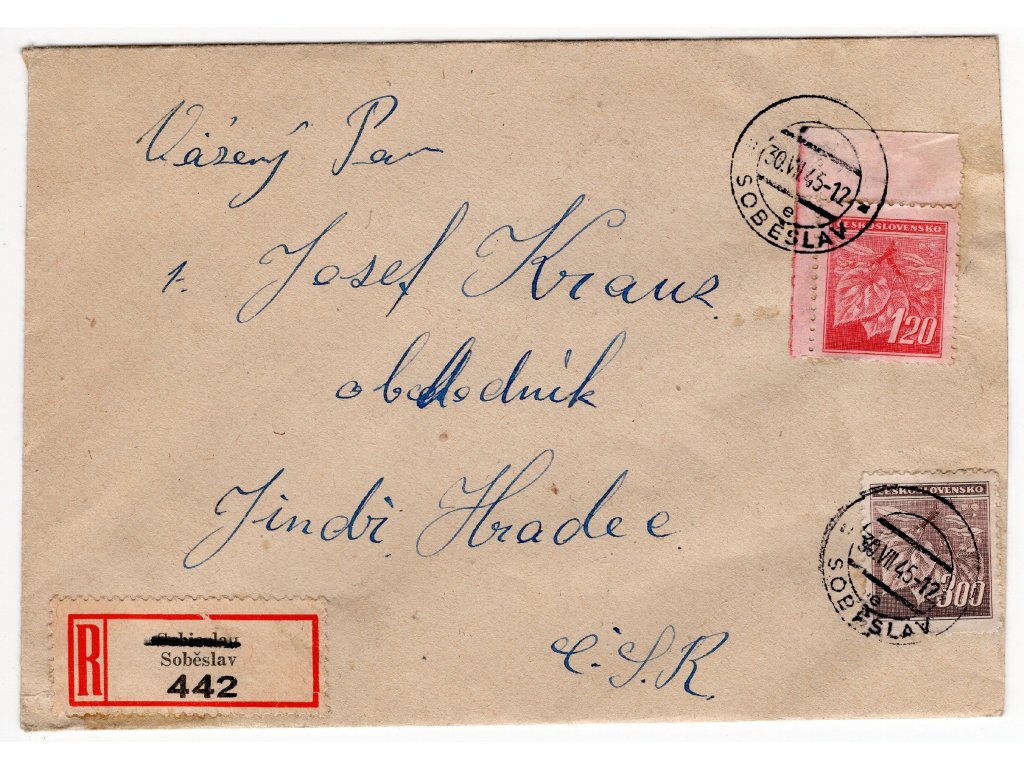 Vázený Pan
Josef Kraus
obchodník
Jindř. Hradec
Č.S.R.
30.VII.45-12
e
SOBĚSLAV
ČESKOSLOVENSKO
1.20
ČESKOSLOVENSKO
300
30.VII.45-12
e
SOBĚSLAV
R
Sobieslau
Soběslav
442